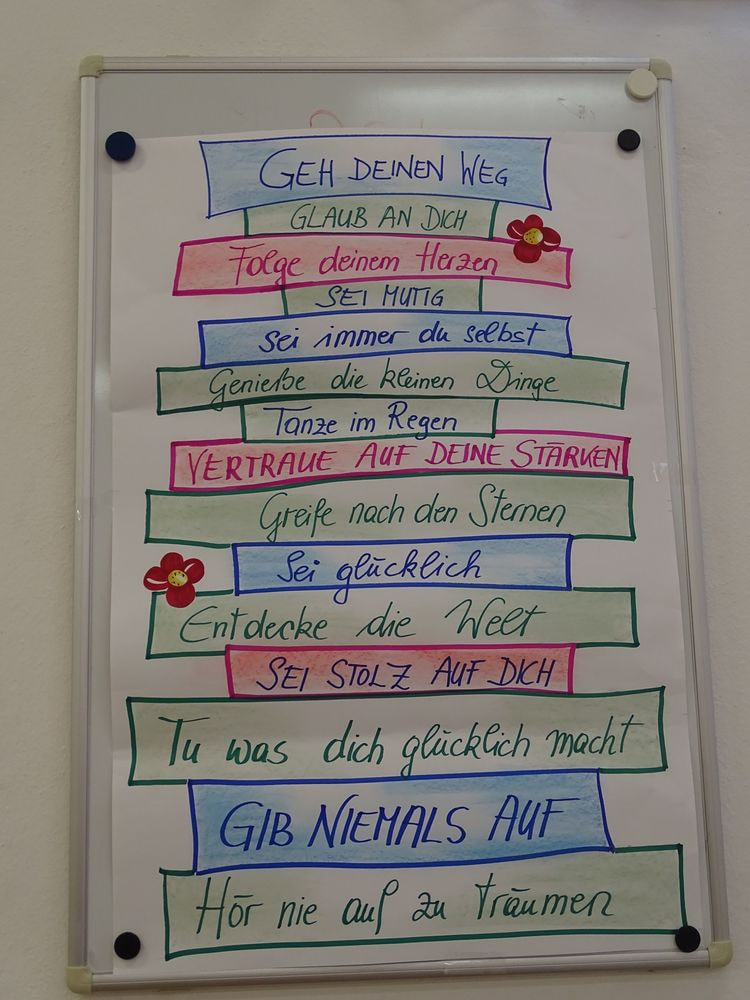 GEH DEINEN WEG
GLAUB AN DICH
Folge deinem Herzen
SEI MUTIG
sei immer du selbst
Genieße die kleinen Dinge
Tanze im Regen
VERTRAUE AUF DEINE STÄRKEN
Greife nach den Sternen
Sei glücklich
Entdecke die Welt
SEI STOLZ AUF DICH
Tu was dich glücklich macht
GIB NIEMALS AUF
Hör nie auf zu träumen